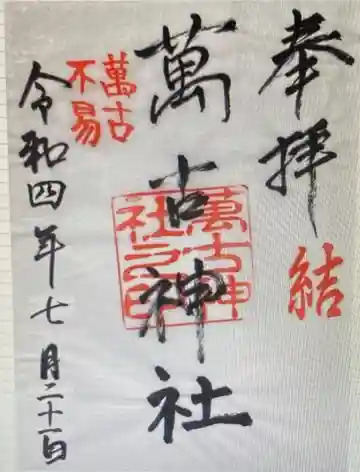 奉拝
結
萬古神社
萬古神社之印
萬古
不易
令和四年七月二十一日